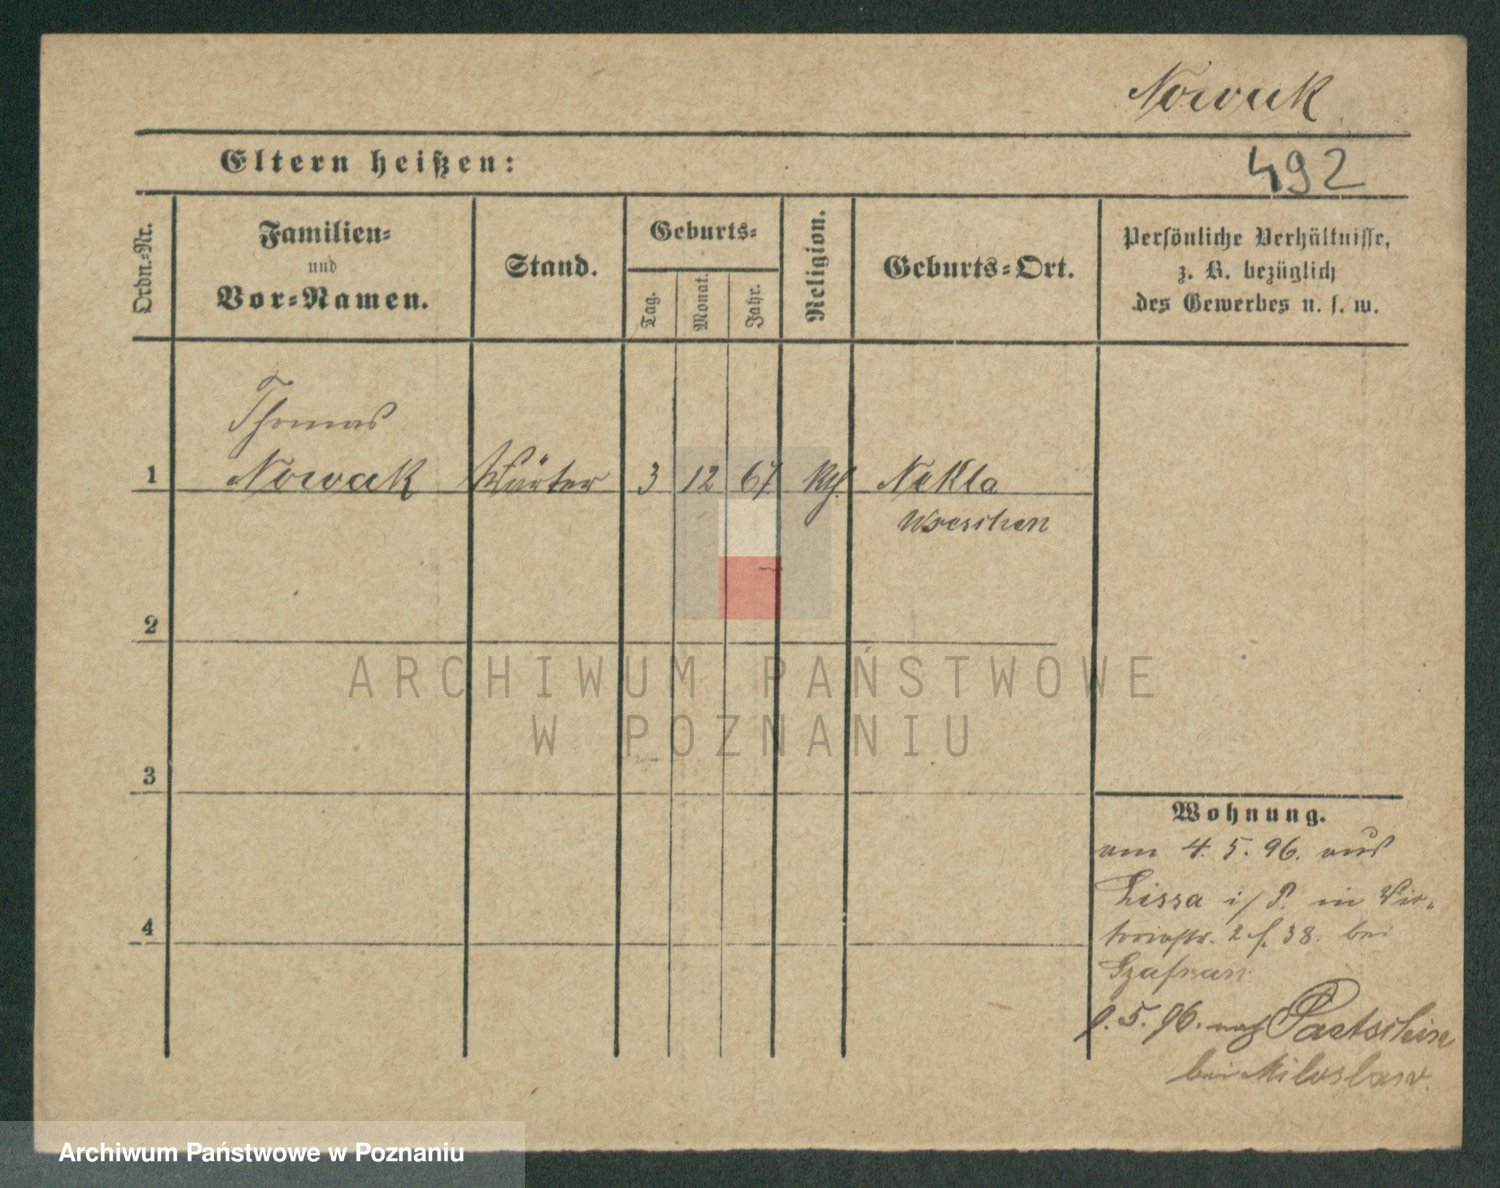 Nowak
Eltern heißen:
492
Ordn.-Nr.
Familien-
und
Vor-Namen.
Stand.
Geburts-
Tag.
Monat.
Jahr.
Religion.
Geburts-Ort.
Persönliche Verhältnisse,
z. B. bezüglich
des Gewerbes u. s. w.
Thomas
1 Nowak Wärter 3 12 67 Kth. Nekla
Wreschen
2
ARCHIWUM PAŃSTWOWE
W POZNANIU
3
Wohnung.
am 4. 5. 96. aus
Lissa i/P. in Vic-
toriastr. 38. bei
Szafran
5. 96. nach
bei Miloslaw.
4
Archiwum Państwowe w Poznaniu